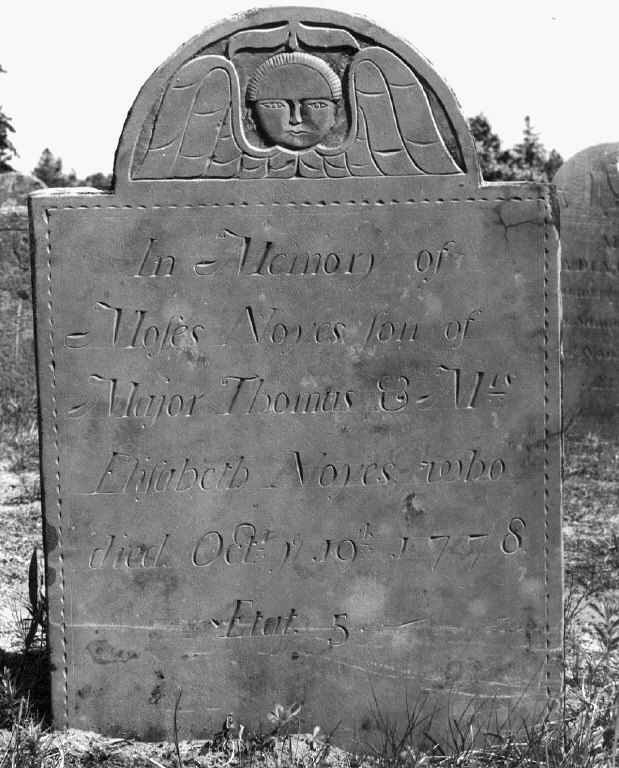 In Memory of
Moſes Noyes ſon of
Major Thomas & Mrs
Eliſabeth Noyes who
died Octr. ye 19th. 1778
Etat. 5